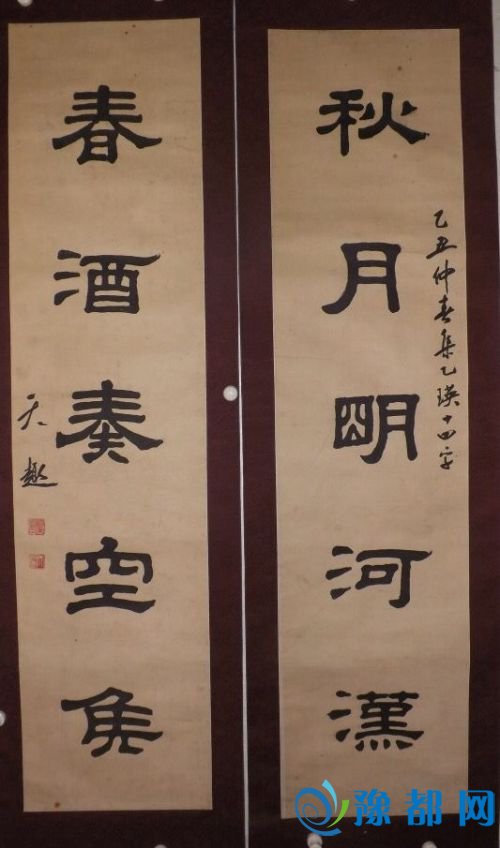 秋月明河漢
乙丑仲春集乙瑛十四字
春酒奏空矦
天趣
豫都网